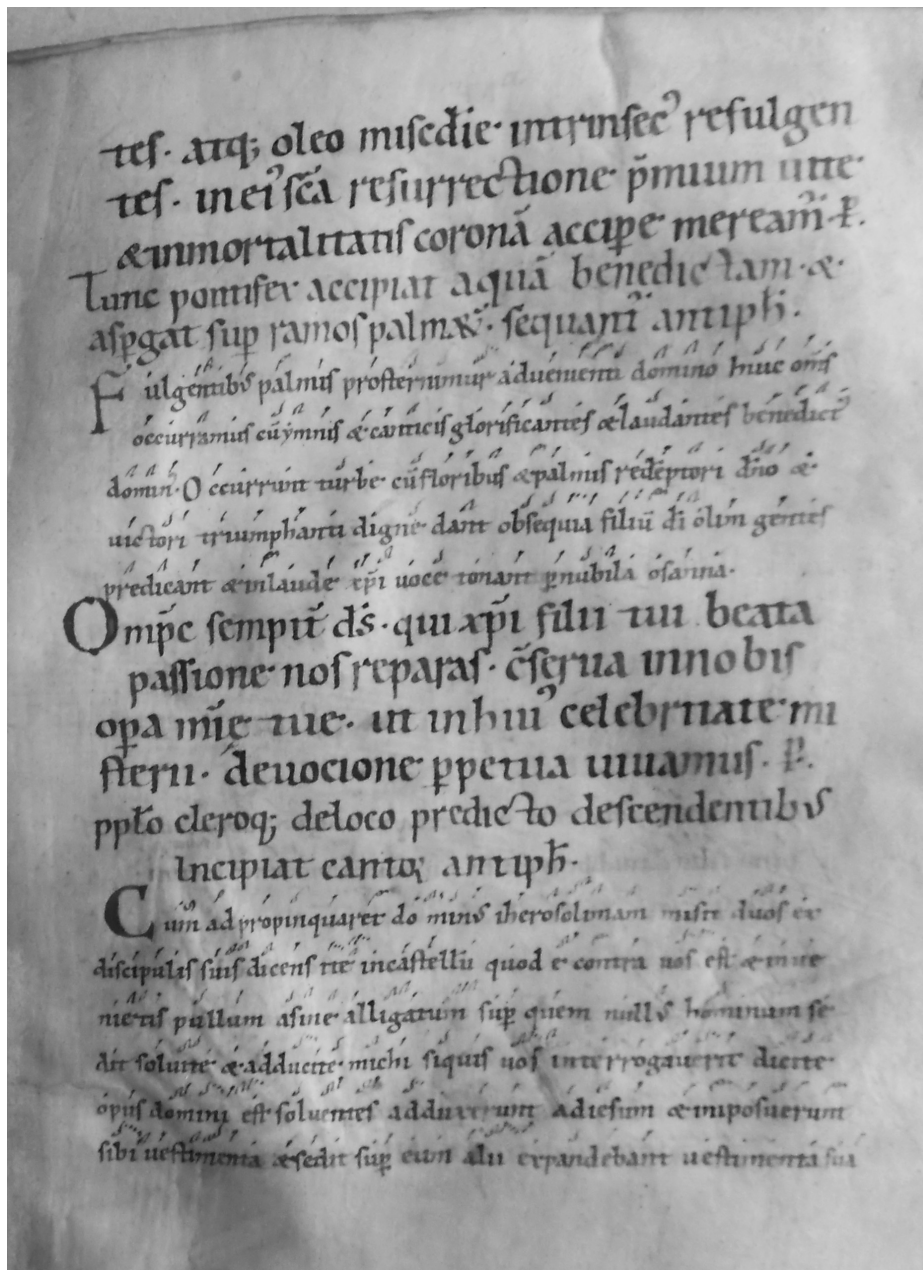 tes. atq; oleo miscd̄ie intrinsecꝰ refulgen
tes. in eiꝰ sc̄a resurrectione p̄mium uite
& inmortalitatis coronā accipe mereamr̄. P.
Tunc pontifex accipiat aquā benedictam. &
aspgat sup ramos palmaꝝ. sequant̄ antiph̄.
Fulgentibꝰ palmis prosternimur aduenienti domino huic om̄s
occurramus cū ymnis & canticis glorificantes & laudantes benedictꝰ
domin̄. Occurrunt turbe cū floribus & palmis redēptori dn̄o &
uictori triumphanti digne dant obsequia filiū di olim gentes
predicant & in laude xp̄i uoce tonant p nubila osanna.
Omp̄c sempit̄ ds̄. qui xp̄i filii tui beata
passione nos reparas. c̄serua in nobis
opa mīe tue. ut in huiꝰ celebritate mi
sterii. deuocione ppetua uiuamus. P.
pplo cleroq; de loco predicto descendentibus
Incipiat cantor antiph̄.
Cum adpropinquaret dominꝰ iherosolimam misit duos ex
discipulis suis dicens ite in castellū quod ē contra uos est & inue
nietis pullum asine alligatum sup quem nullꝰ hominum se
dit soluite & adducite michi siquis uos interrogauerit dicite
opus domini est soluentes adduxerunt ad iesum & imposuerunt
sibi uestimenta & sedit sup eum alii expandebant uestimenta sua